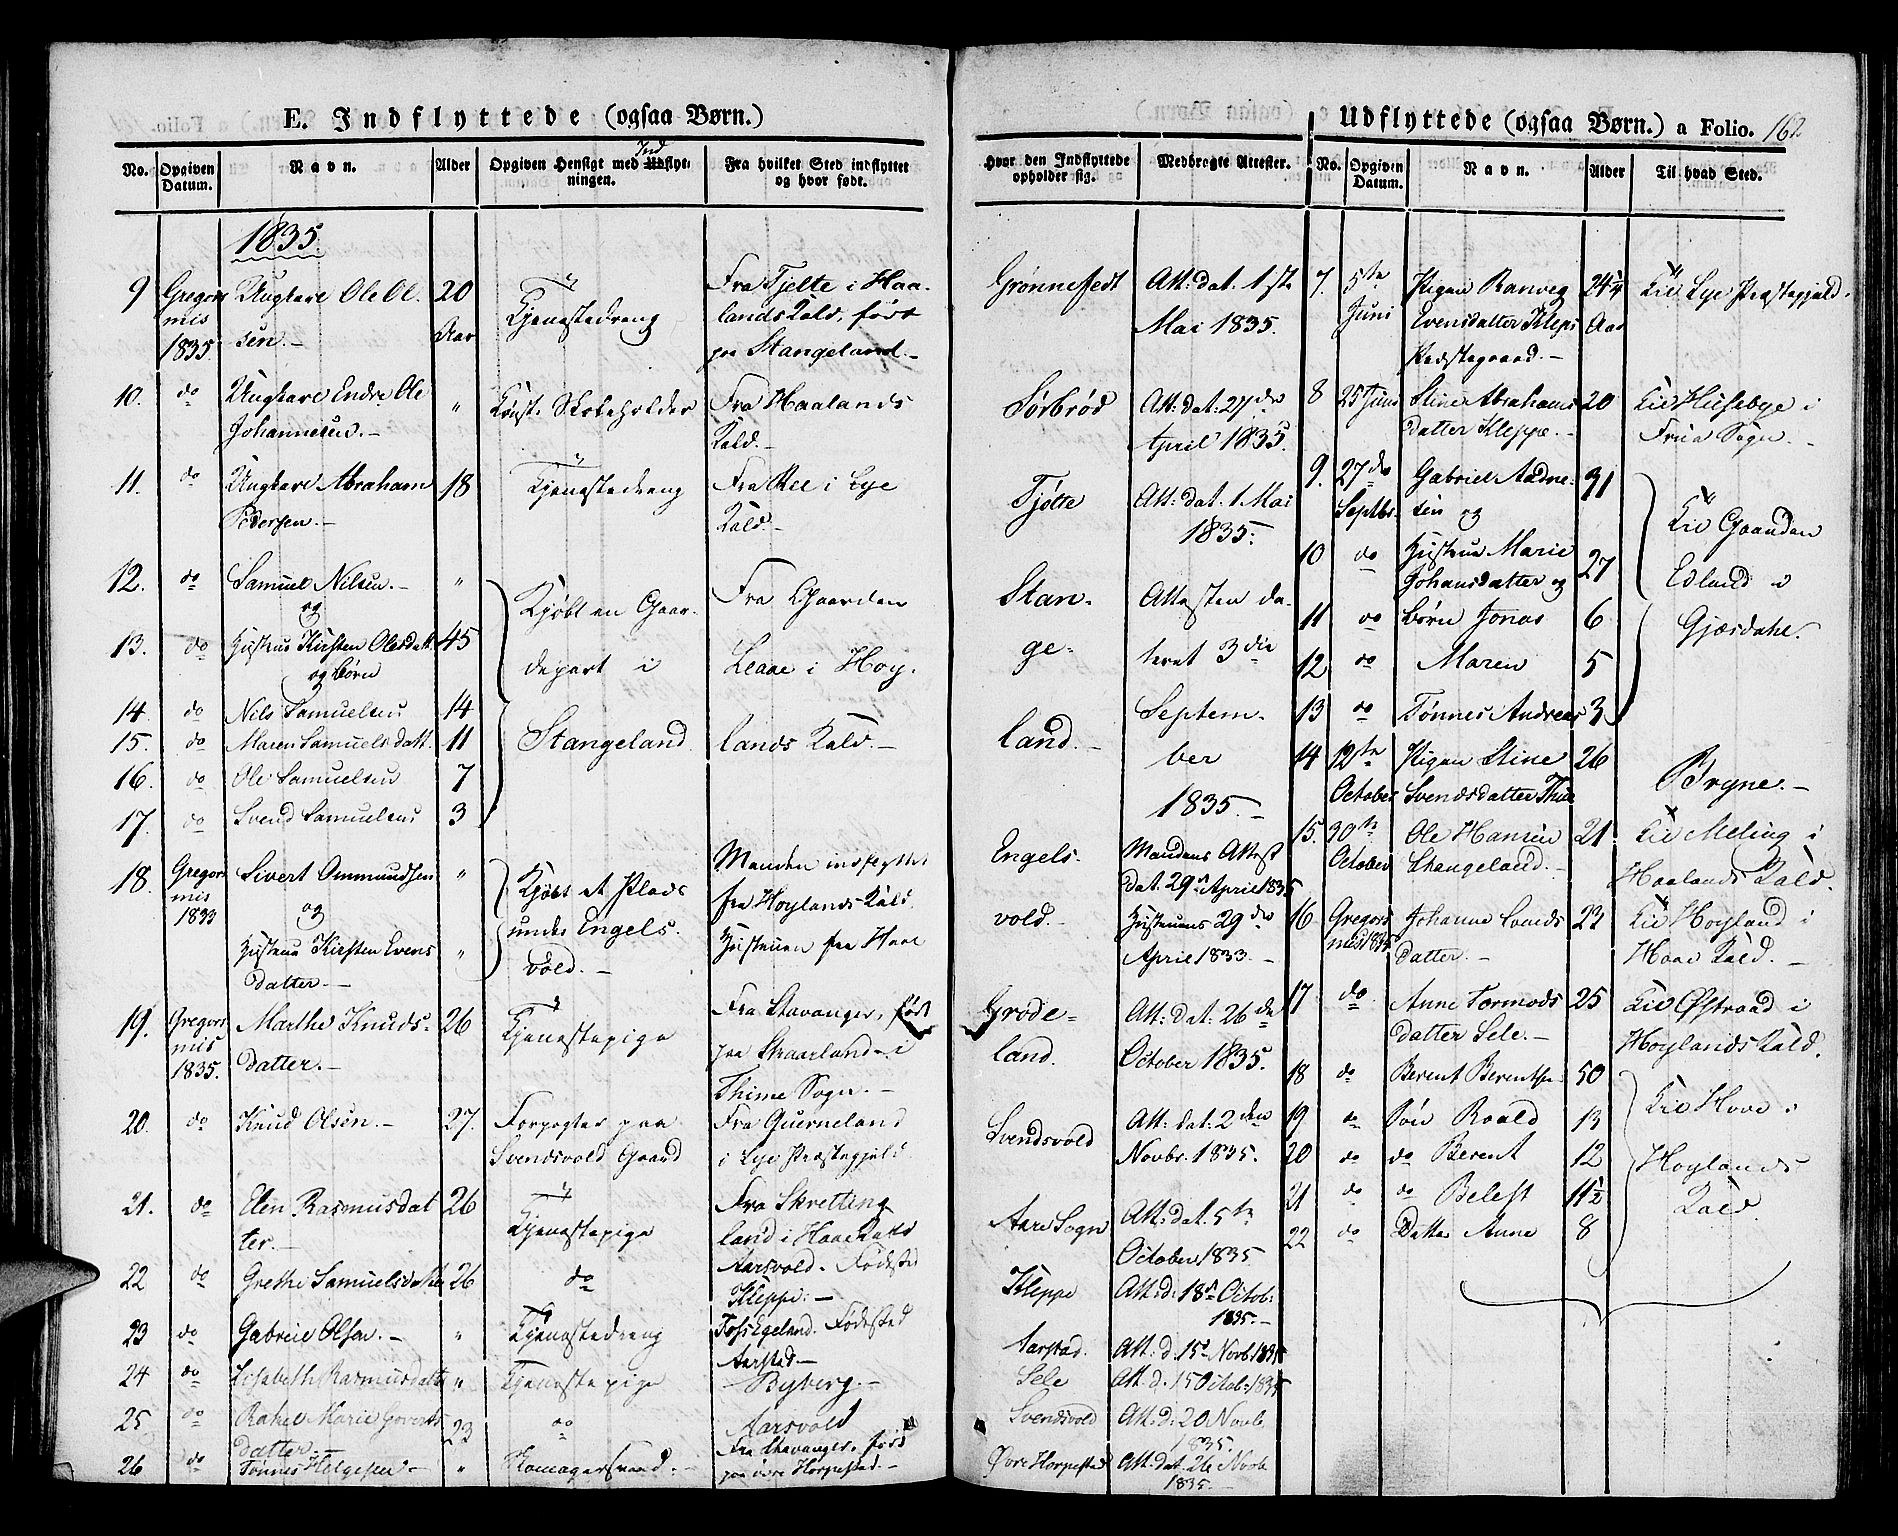 E. Indflyttede (ogsaa Børn.)
No. Opgiven Datum. Navn. Alder Opgiven Hensigt med Indflytningen. Fra hvilket Sted indflyttet og hvor født.
1835.
9 Gregorimis 1835 Ungkarl Ole Olsen.- 20 Aar Tjenestedreng Fra Tjelte i Haalands Kald, født paa Stangeland.-
10. do Ungkarl Endre Ole Johannesen.- " Skoleholder Fra Haalands Kald.-
11. do Ungkarl Abraham Pedersen.- 18 Tjenestedreng Fra Ree i Lye Kald.-
12. do Samuel Nilsen.- "
og
13. do Hustrue Kirsten Olesdatt. 45
og Børn
14. do Nils Samuelsen 14
15. do Maren Samuelsdatt. 11
16. do Ole Samuelsen 7
17. do Svend Samuelsen 3
Kjøbt en Gaardepart i Stangeland. Fra Gaarden Leaae i Høylands Kald.-
18. Gregorimis 1833 Sivert Ommundsen "
og
Hustrue Kirsten Evensdatter.- "
Kjøbt et Plads under Engelsvold.- Manden indflyttet fra Høylands Kald. Hustruen fra Haae
19. Gregorimis 1835. Marthe Knudsdatter.- 26 Tjenestepige Fra Stavanger, født paa Skaarland i Thime Sogn.-
20. do Knud Olsen.- 27. Forpagter paa Svendsvold Gaard Fra Queneland i Lye Præstegjeld.
21. do Elen Rasmusdatter.- 26 Tjenestepige Fra Skretting land i Haae
22 do Grethe Samuelsdatter 26 do Aarsvold. Fødested Kleppe.-
23 do Gabriel Olsen.- " Tjenestedreng Fosseegeland. Fødested Aarstad.-
24 do Lisabeth Rasmusdatter " Tjenestepige Ryberg.-
25 do Rahel Marie Govertsdatter.- 23 do Aarsvold
26 do Tønnes Helgesen.- " Fra Stavanger, født paa øvre Horpestad.-
Hvor den Indflyttede opholder sig. Medbragte Attester.
Grønnefest Att: dat. 1ste Mai 1835.
Sørbrød Att: dat: 27de April 1835.
Tjøtte Att: dat. 1. Mai 1835.
Stangeland.- Attesten dateret 3die September 1835.-
Engelsvold.- Mandens Attest dat. 29 April 1835 Hustruens 29de April 1833.-
Grødeland. Att: dat: 26de October 1835.
Svendsvold Att: dat: 2den Novbr. 1835.
Aare Sogn Att: dat. 5te October 1835
Kleppe Att: d. 18 Octob: 1835.-
Aarstad. Att: d. 15 Novb. 1835
Sele Att. d. 15 Octob. 1835
Svendsvold Att: d: 20 Novb. 1835.
Øvre Horpestad Att: dat. 26 Novb. 1835.-
Udflyttede (ogsaa Børn.) a Folio. 162
No. Opgiven Datum. Navn. Alder Til hvad Sted.
7. 5te Juni Pigen Ranveg Evensdatter Kleps Præstegaard.- 24¼ Aar Til Lye Præstegjeld.
8 25 Juni Stine Abrahamsdatter Kleppe.- 20 Til Husebye i Sogn.-
9. 27de Septbr. Gabriel Aadnesen og 31
10 do Hustrue Marie Johansdatter og 27
11 do Børn Jonas 6
12 do Maren 5
13 do Tønnes Andreas 3
Til Gaarden Edland i Gjæsdahl.
14 12te October Pigen Stine Svendsdatter Thue 26 Bryne.-
15. 30te October Ole Hansen Stangeland.- 21 Til Meling i Haalands Kald.
16 Gregorimis 1835 Johanne Svendsdatter.- 23 Til Høyland i Haae Kald.-
17 do Anne Tormodsdatter Sele.- 25 Til Østraad i Høylands Kald.
18 do Berent Berentsen 50
19 do Søn Roald 13
20 do do Berent 12
21 do do Belest 11½
22 do Datter Anne 8
Til Hove i Høylands Kald.